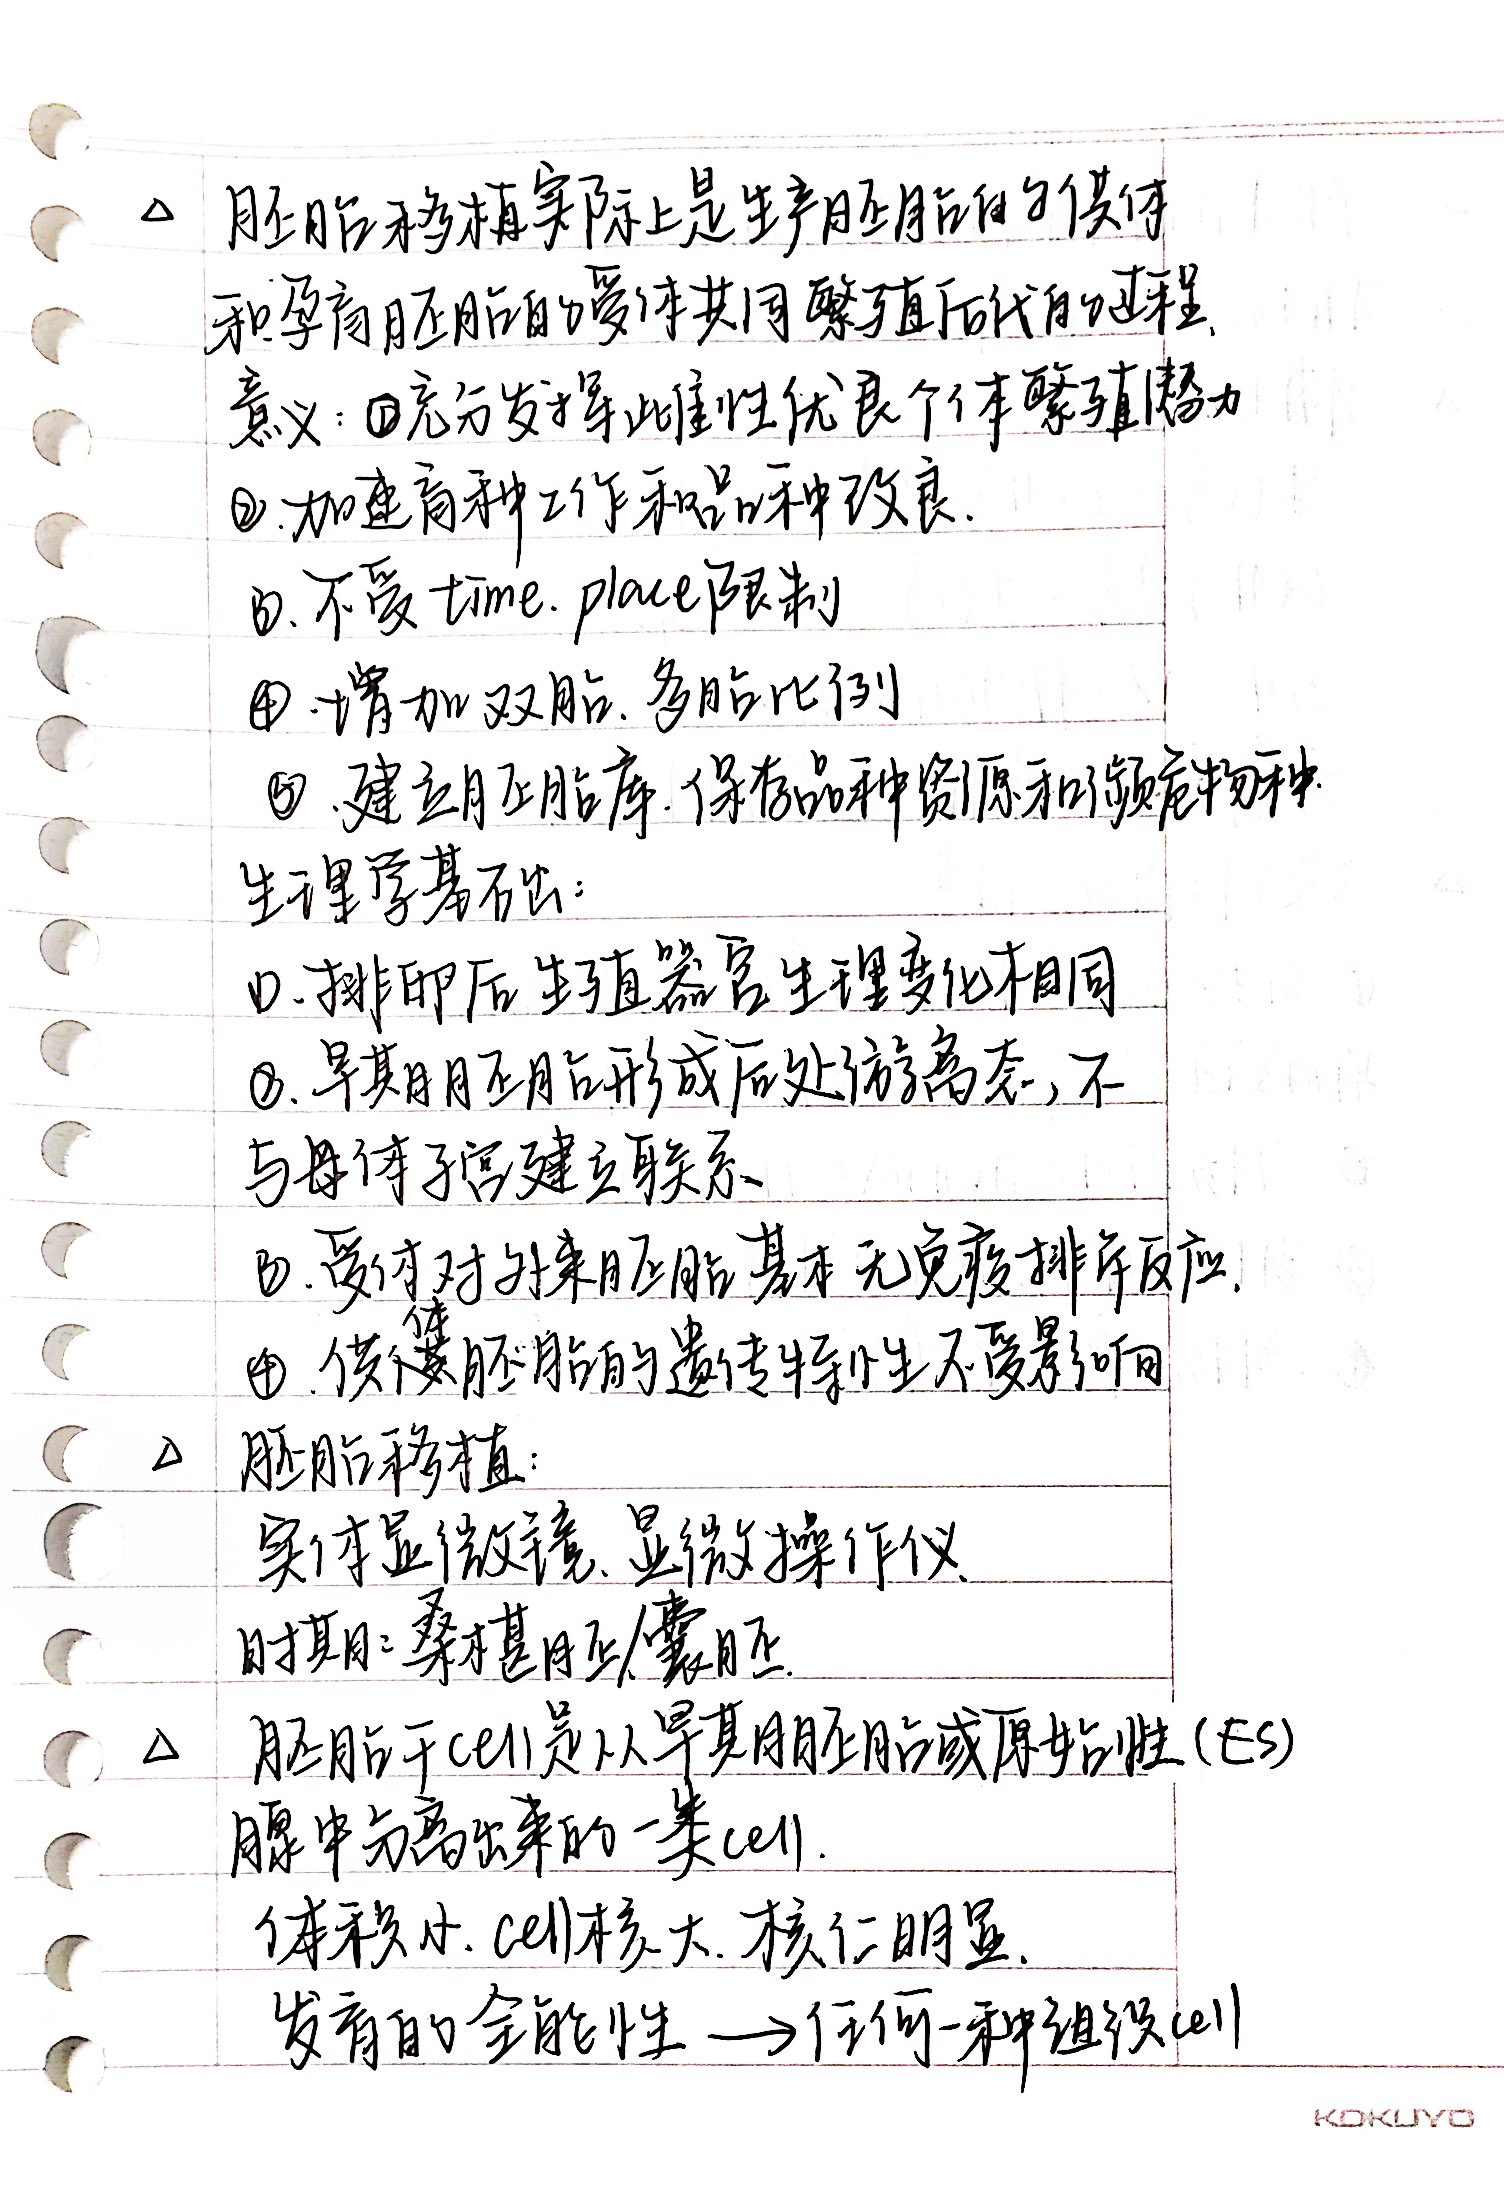 △ 胚胎移植实际上是生产胚胎的供体
和孕育胚胎的受体共同繁殖后代的过程.
意义：①充分发挥雌性优良个体繁殖潜力
②.加速育种工作和品种改良.
③.不受time.place限制
④.增加双胎.多胎比例
⑤.建立胚胎库.保存品种资源和濒危物种.
生理学基础：
①.排卵后生殖器官生理变化相同
②.早期胚胎形成后处游离态，不
与母体子宫建立联系
③.受体对外来胚胎基本无免疫排斥反应.
④.供体胚胎的遗传特性不受影响
△ 胚胎移植：
实体显微镜、显微操作仪
时期：桑椹胚/囊胚.
△ 胚胎干cell是从早期胚胎或原始性(ES)
腺中分离出来的一类cell.
体积小.cell核大.核仁明显.
发育的全能性→任何一种组织cell
KOKUYO